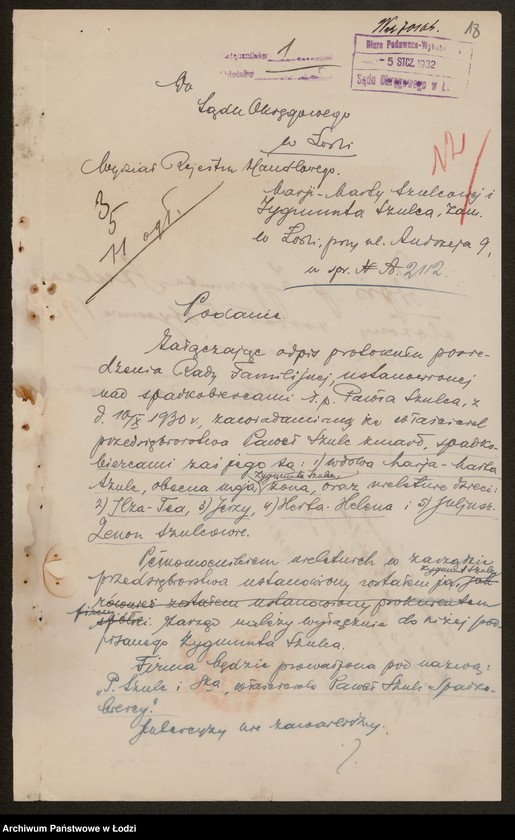 18
załączników 1
Biuro Podawczo-
- 5 STCZ. 1932
Sądu Okręgowego w Ł
Do
Sądu Okręgowego
w Łodzi
Wydział Rejestru Handlowego.
35
11 ogł.
Marji-Marty Szulcowej i
Zygmunta Szulca, zam.
w Łodzi, przy ul. Andrzeja 9,
w spr. № A. 2112
Podanie
Załączając odpis protokułu posie-
dzenia Rady Familijnej, ustanowionej
nad spadkobiercami ś.p. Pawła Szulca, z
d. 10/X 1930 r, zawiadamiamy że właściciel
przedsiębiorstwa Paweł Szulc zmarł, spadko-
biercami zaś jego są: 1) wdowa Marja-Marta
Szulc, obecna moja, Zygmunta Szulca, żona, oraz nieletnie dzieci:
2) Ilza-Tea, 3) Jerzy, 4) Herta-Helena i 5) Juljusz-
Zenon Szulcowie.
Pełnomocnikiem nieletnich w zarządzie
przedsiębiorstwa ustanowiony zostałem ja, Zygmunt Szulc, jak
również zostałem ustanowiony prokurentem
firmy spółki. Zarząd należy wyłącznie do niżej pod-
pisanego Zygmunta Szulca.
Firma będzie prowadzona pod nazwą:
„P. Szulc i S-ka, właściciele Pawła Szulc Spadko-
biercy."
Intercyzy nie zawarliśmy.
Archiwum Państwowe w Łodzi